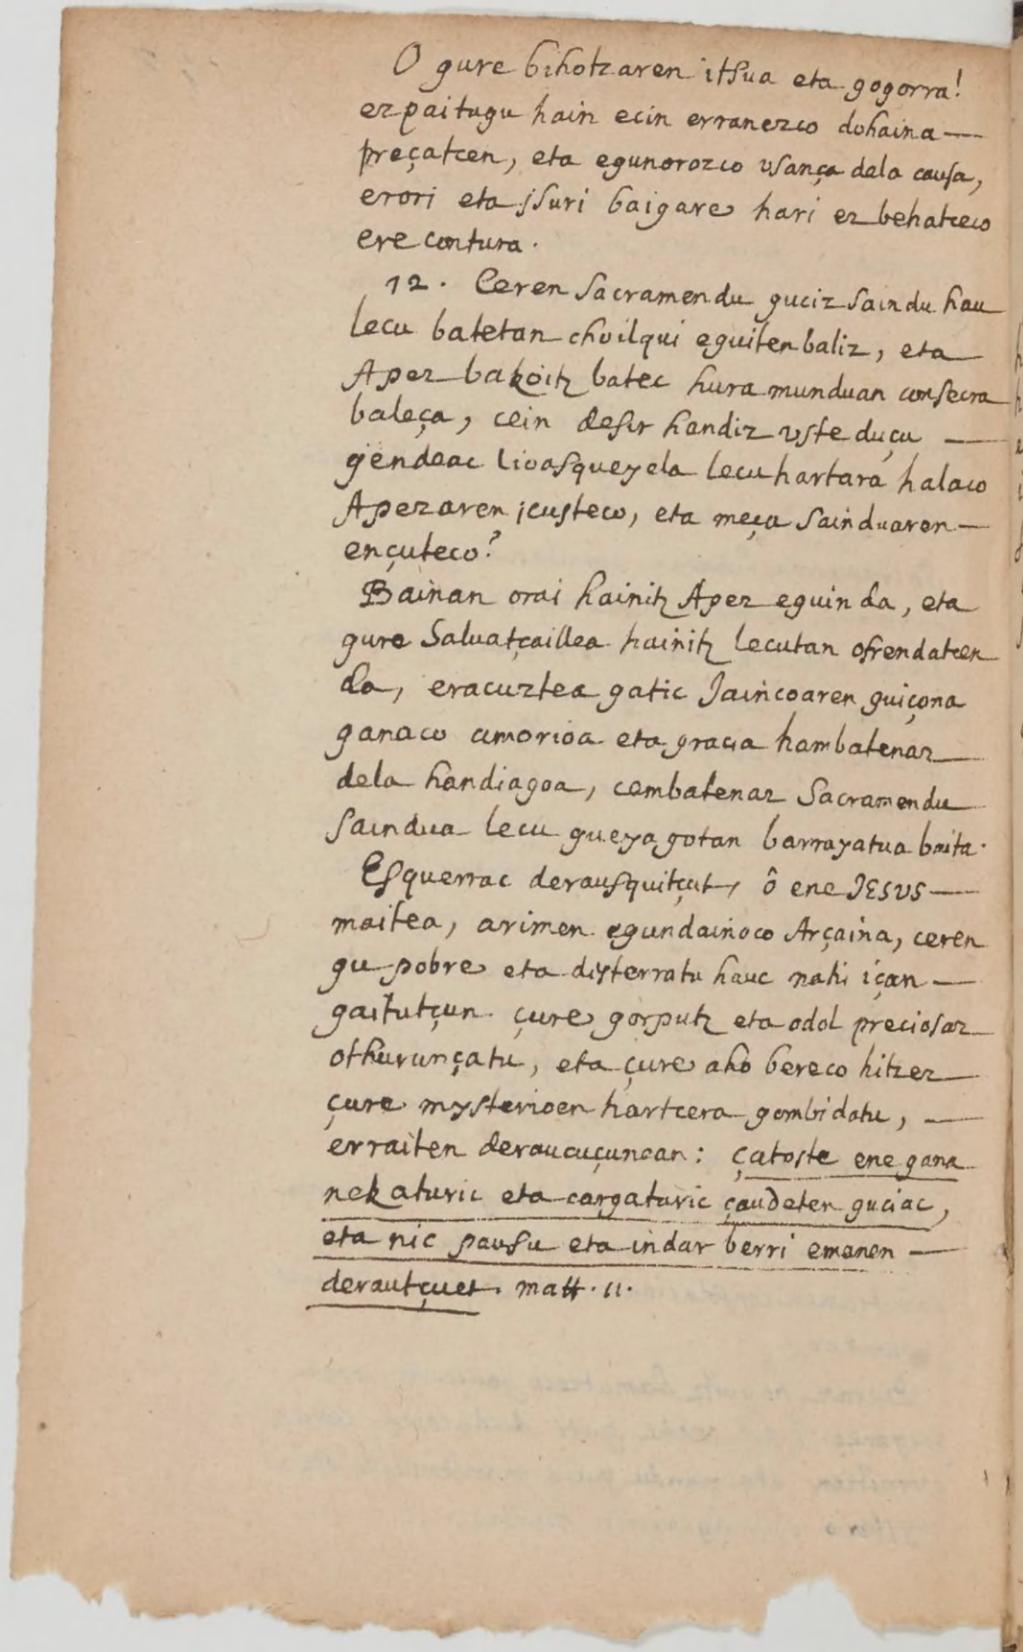 O gure bihotzaren itsua eta gogorra!
ezpaitugu hain ecin erranezco dohaina —
preçatcen, eta egunorozco vsança dela causa,
erori eta issuri baigare hari ez behatceco
ere contura.
12. Ceren Sacramendu guciz saindu hau
lecu batetan choilqui eguiten baliz, eta
Apez bakoitz batec hura munduan consecra
baleça, cein desir handiz vste duçu —
gendeac lioasqueyela lecu hartara halaco
Apezaren icusteco, eta meça sainduaren —
ençuteco?
Bainan orai hainitz Apez eguin da, eta
gure Saluatçaillea hainitz lecutan ofrendatcen
da, eracuztea gatic Jaincoaren guiçona
ganaco amorioa eta gracia hambatenaz
dela handiagoa, cembatenaz Sacramendu
saindua lecu gueyagotan barrayatua baita.
Esquerrac derausquitçut, ô ene JESUS —
maitea, arimen egundainoco Arçaina, ceren
gu pobre eta disterratu hauc nahi içan —
gaitutçun çure gorputz eta odol preciosaz
othurunçatu, eta çure aho bereco hitzez
çure mysterioen hartcera gombidatu, —
erraiten deraucuçunean: çatozte ene gana
nekaturic eta cargaturic çaudeten guciac,
eta nic pausu eta indar berri emanen —
derautçuet. matt. 11.